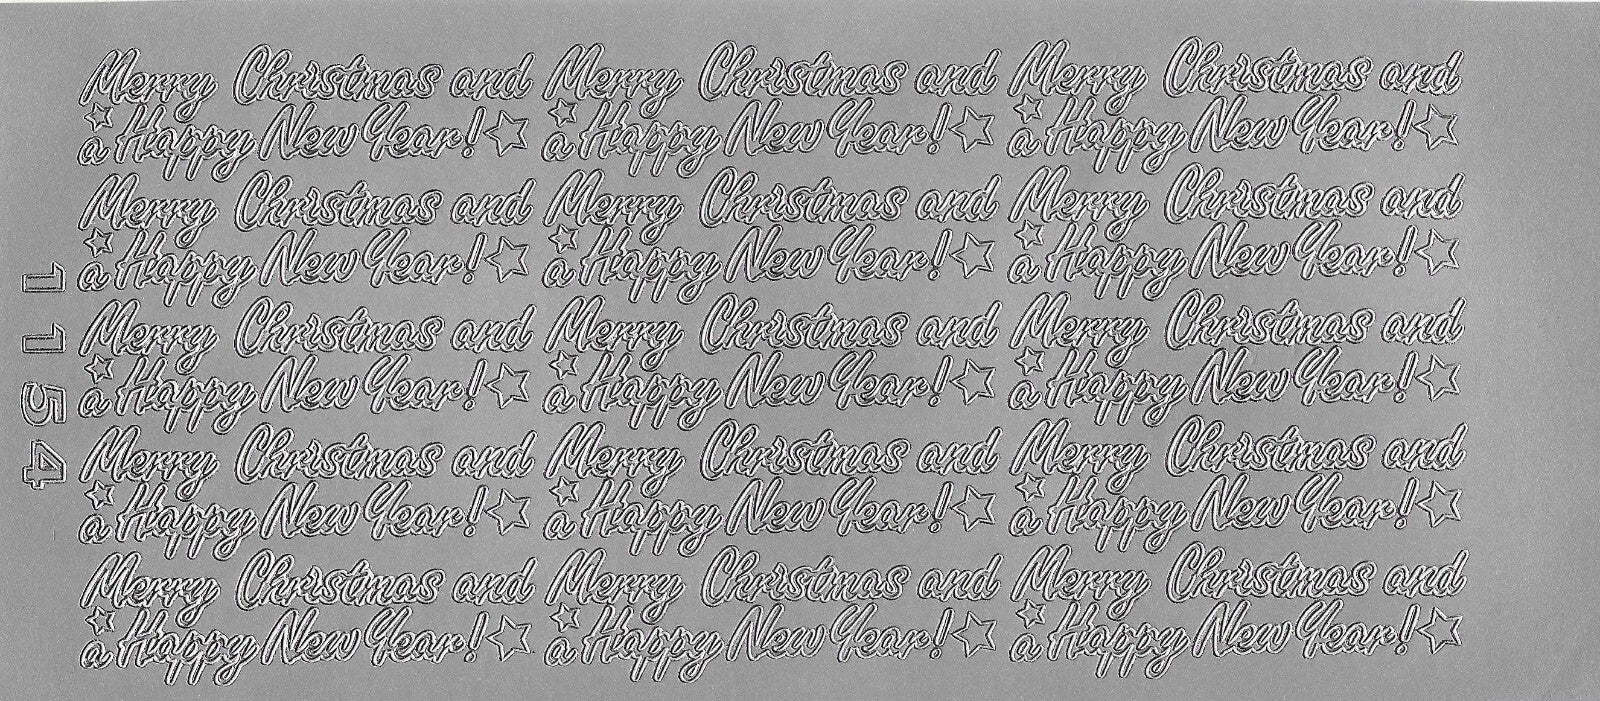 Merry Christmas and Merry Christmas and Merry Christmas and
a Happy New Year! a Happy New Year! a Happy New Year!
Merry Christmas and Merry Christmas and Merry Christmas and
a Happy New Year! a Happy New Year! a Happy New Year!
Merry Christmas and Merry Christmas and Merry Christmas and
a Happy New Year! a Happy New Year! a Happy New Year!
Merry Christmas and Merry Christmas and Merry Christmas and
a Happy New Year! a Happy New Year! a Happy New Year!
Merry Christmas and Merry Christmas and Merry Christmas and
a Happy New Year! a Happy New Year! a Happy New Year!
1154